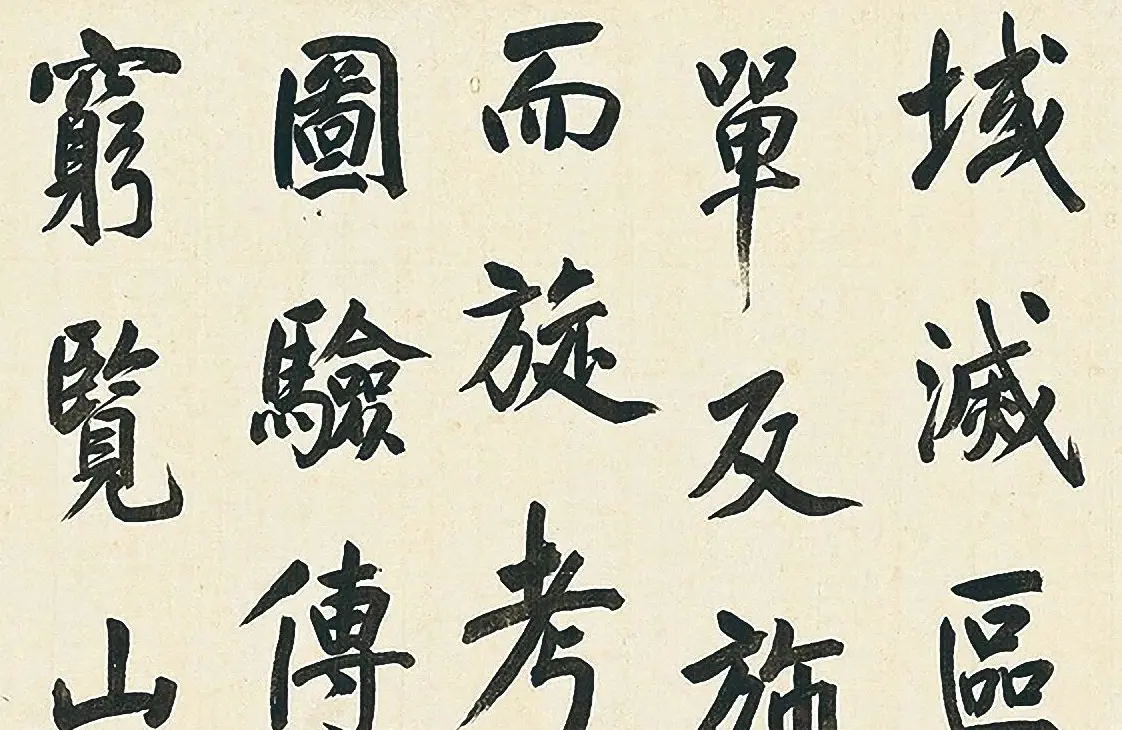 域滅區
單反施
而旋考
圖驗傳
窮覽山